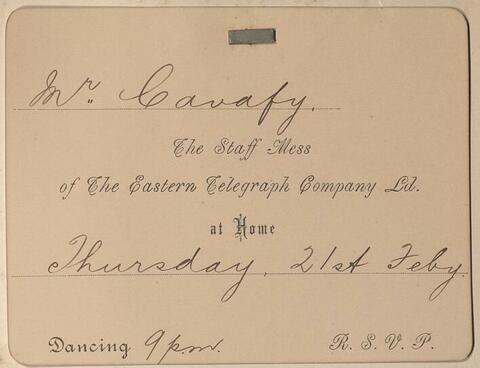 Mr. Cavafy.
The Staff Mess
of The Eastern Telegraph Company Ld.
at Home
Thursday, 21st Feby.
Dancing 9 p.m. R. S. V. P.